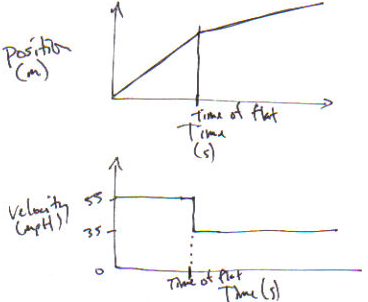 Position
(m)
Time of flat
Time
(s)
Velocity
(mpH)
55
35
0
Time of flat
Time (s)